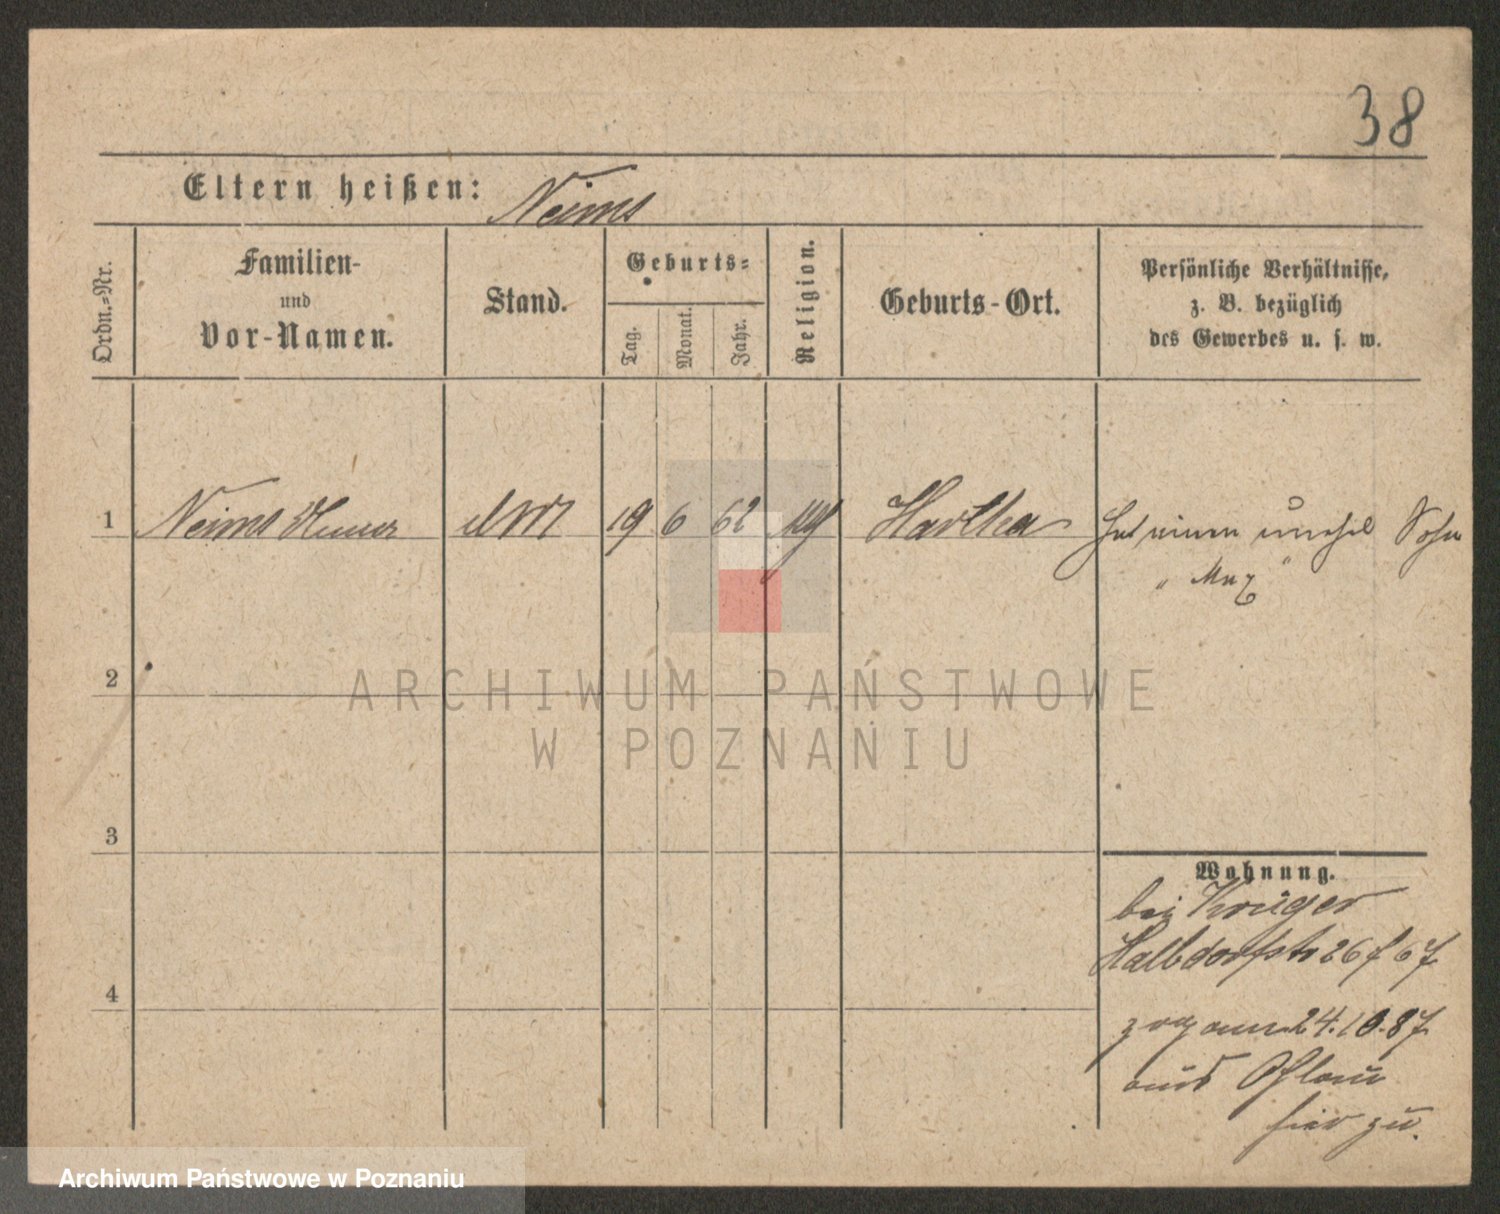 38
Eltern heißen: Neims
Ordn.-Nr.
Familien-
und
Vor-Namen.
Stand.
Geburts-
Tag.
Monat.
Jahr.
Religion.
Geburts-Ort.
Persönliche Verhältnisse,
z. B. bezüglich
des Gewerbes u. s. w.
1 Neims 19 6 62 Hat einen unehel Sohn
„ Max "
2
3
4
Wohnung.
bei Krüger
Halbdorfstr 26
zog am 24.10.87
aus Ohlau
hier zu.
ARCHIWUM PAŃSTWOWE
W POZNANIU
Archiwum Państwowe w Poznaniu